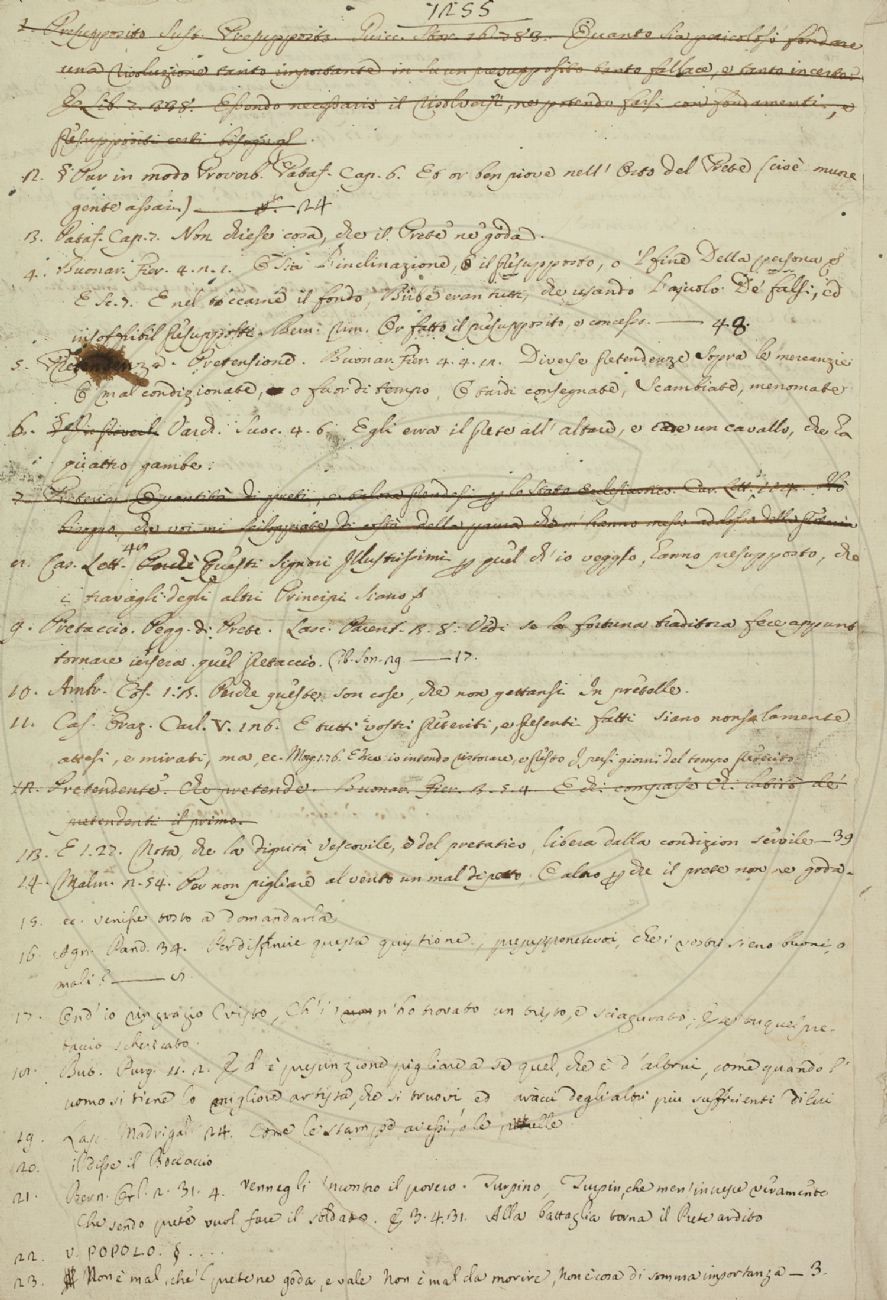 1255
1. Presupposito Sust. Presupposto. Guicc. Stor. 16. 783. Quanto sia pericoloso fondare
una risoluzione tanto importante in su un presupposito tanto fallace, e tanto incerto.
E Lib. 2. 338. Essendo necessario il risolversi, ne potendo farsi con fondamenti, e
presuppositi certi
2. § Pur in modo Proverb. Pataf. Cap. 6. Et or ben piove nell' Orto del Prete (cioè muore
gente assai) 24
3. Pataf. Cap. 7. Non chiese cosa, che il Prete ne goda.
4. Buonar. Fier. 4. n. 1. E stà l'inclinazione, o il presupposto, o 'l fine della persona
E Sc. 7. E nel toccarne il fondo, Bube eran tutti, che usando l'aiuolo De' falsi, ed
insoffribil presupposti. Rim. Or fatto il presupposito, e concesso. 48.
5. Pretendenza. Pretensione. Buonar. Fier. 4. 4. 12. Diverse pretendenze sopra le mercanzie
O mal condizionate, o fuor di tempo, O tardi consegnate, Scambiate, menomate
6. Varch. Suoc. 4. 6. Egli erra il prete all' altare, e cade un cavallo, che ha
quattro gambe.
7. Preteria. Quantità di preti, e talora prendesi lo stato ecclesiastico. Car. Lett. Ho
bisogno, che voi mi sviluppiate di costà della paura che hanno messo addosso della
8. Car. Lett. Perchè Questi Signori Illustrissimi quel ch' io veggio, hanno presupposto, che
i travagli degli altri Principi siano
9. Pretaccio. Pegg. di Prete. Lasc. Parent. 5. 8. Vedi se la fortuna traditora fece appunt.
tornare iersera quel pretaccio. Rb. Son. 29 17.
10. Ambr. Cof. 1. 3. Perchè queste son cose, che non gettansi In pretelle.
11. Cas. Oraz. Carl. V. 126. E tutti i vostri preteriti, e presenti fatti siano non solamente
attesi, e mirati, ma, ec. Mor. 176. Ecco io intendo ristorare, e presto I persi giorni del tempo preterito
12. Pretendente. Che pretende. Buonar. Fier. 3. 5. 4. E di comparse Ch. labirò de'
pretendenti il primo.
13. E 1. 27. Nota, che la dignità vescovile, e del pretatico, libera dalla condizion servile 39
14. Malm. 2. 54. Per non pigliare al vento un mal di petto, O altro che il prete non ne goda.
15. ec. venisse tosto a domandarla
16. Agn. Pand. 34. Per diffinire questa quistione, presupponetevoi, che i vostri sieno buoni, o
mali?
17. Ond' io ringrazio Cristo, Ch' i' n' ho trovato un tristo, e sciagurato; E se' tu quel pre-
taccio scherzato.
18. But. Purg. 11. 2. E è presunzione pigliare a se quel, che è d' altrui, come quando l'
uomo si tiene lo migliore artista, che si truovi ed avacci degli altri più sufficienti di lui
19. Lasc. Madrigal. 24. Come le stampe avessi, o le pretelle.
20. il disse il Boccaccio
21. Bern. Orl. 2. 31. 4. vennegli incontro il povero Turpino, Turpin, che men' incresce veramente
Che sendo prete vuol fare il soldato. E 3. 4. 31. Alla battaglia torna il Prete ardito
22. v. POPOLO. § . . . .
23. Non è mal, che 'l prete ne goda, e vale Non è mal da morire, non è cosa di somma importanza 3.